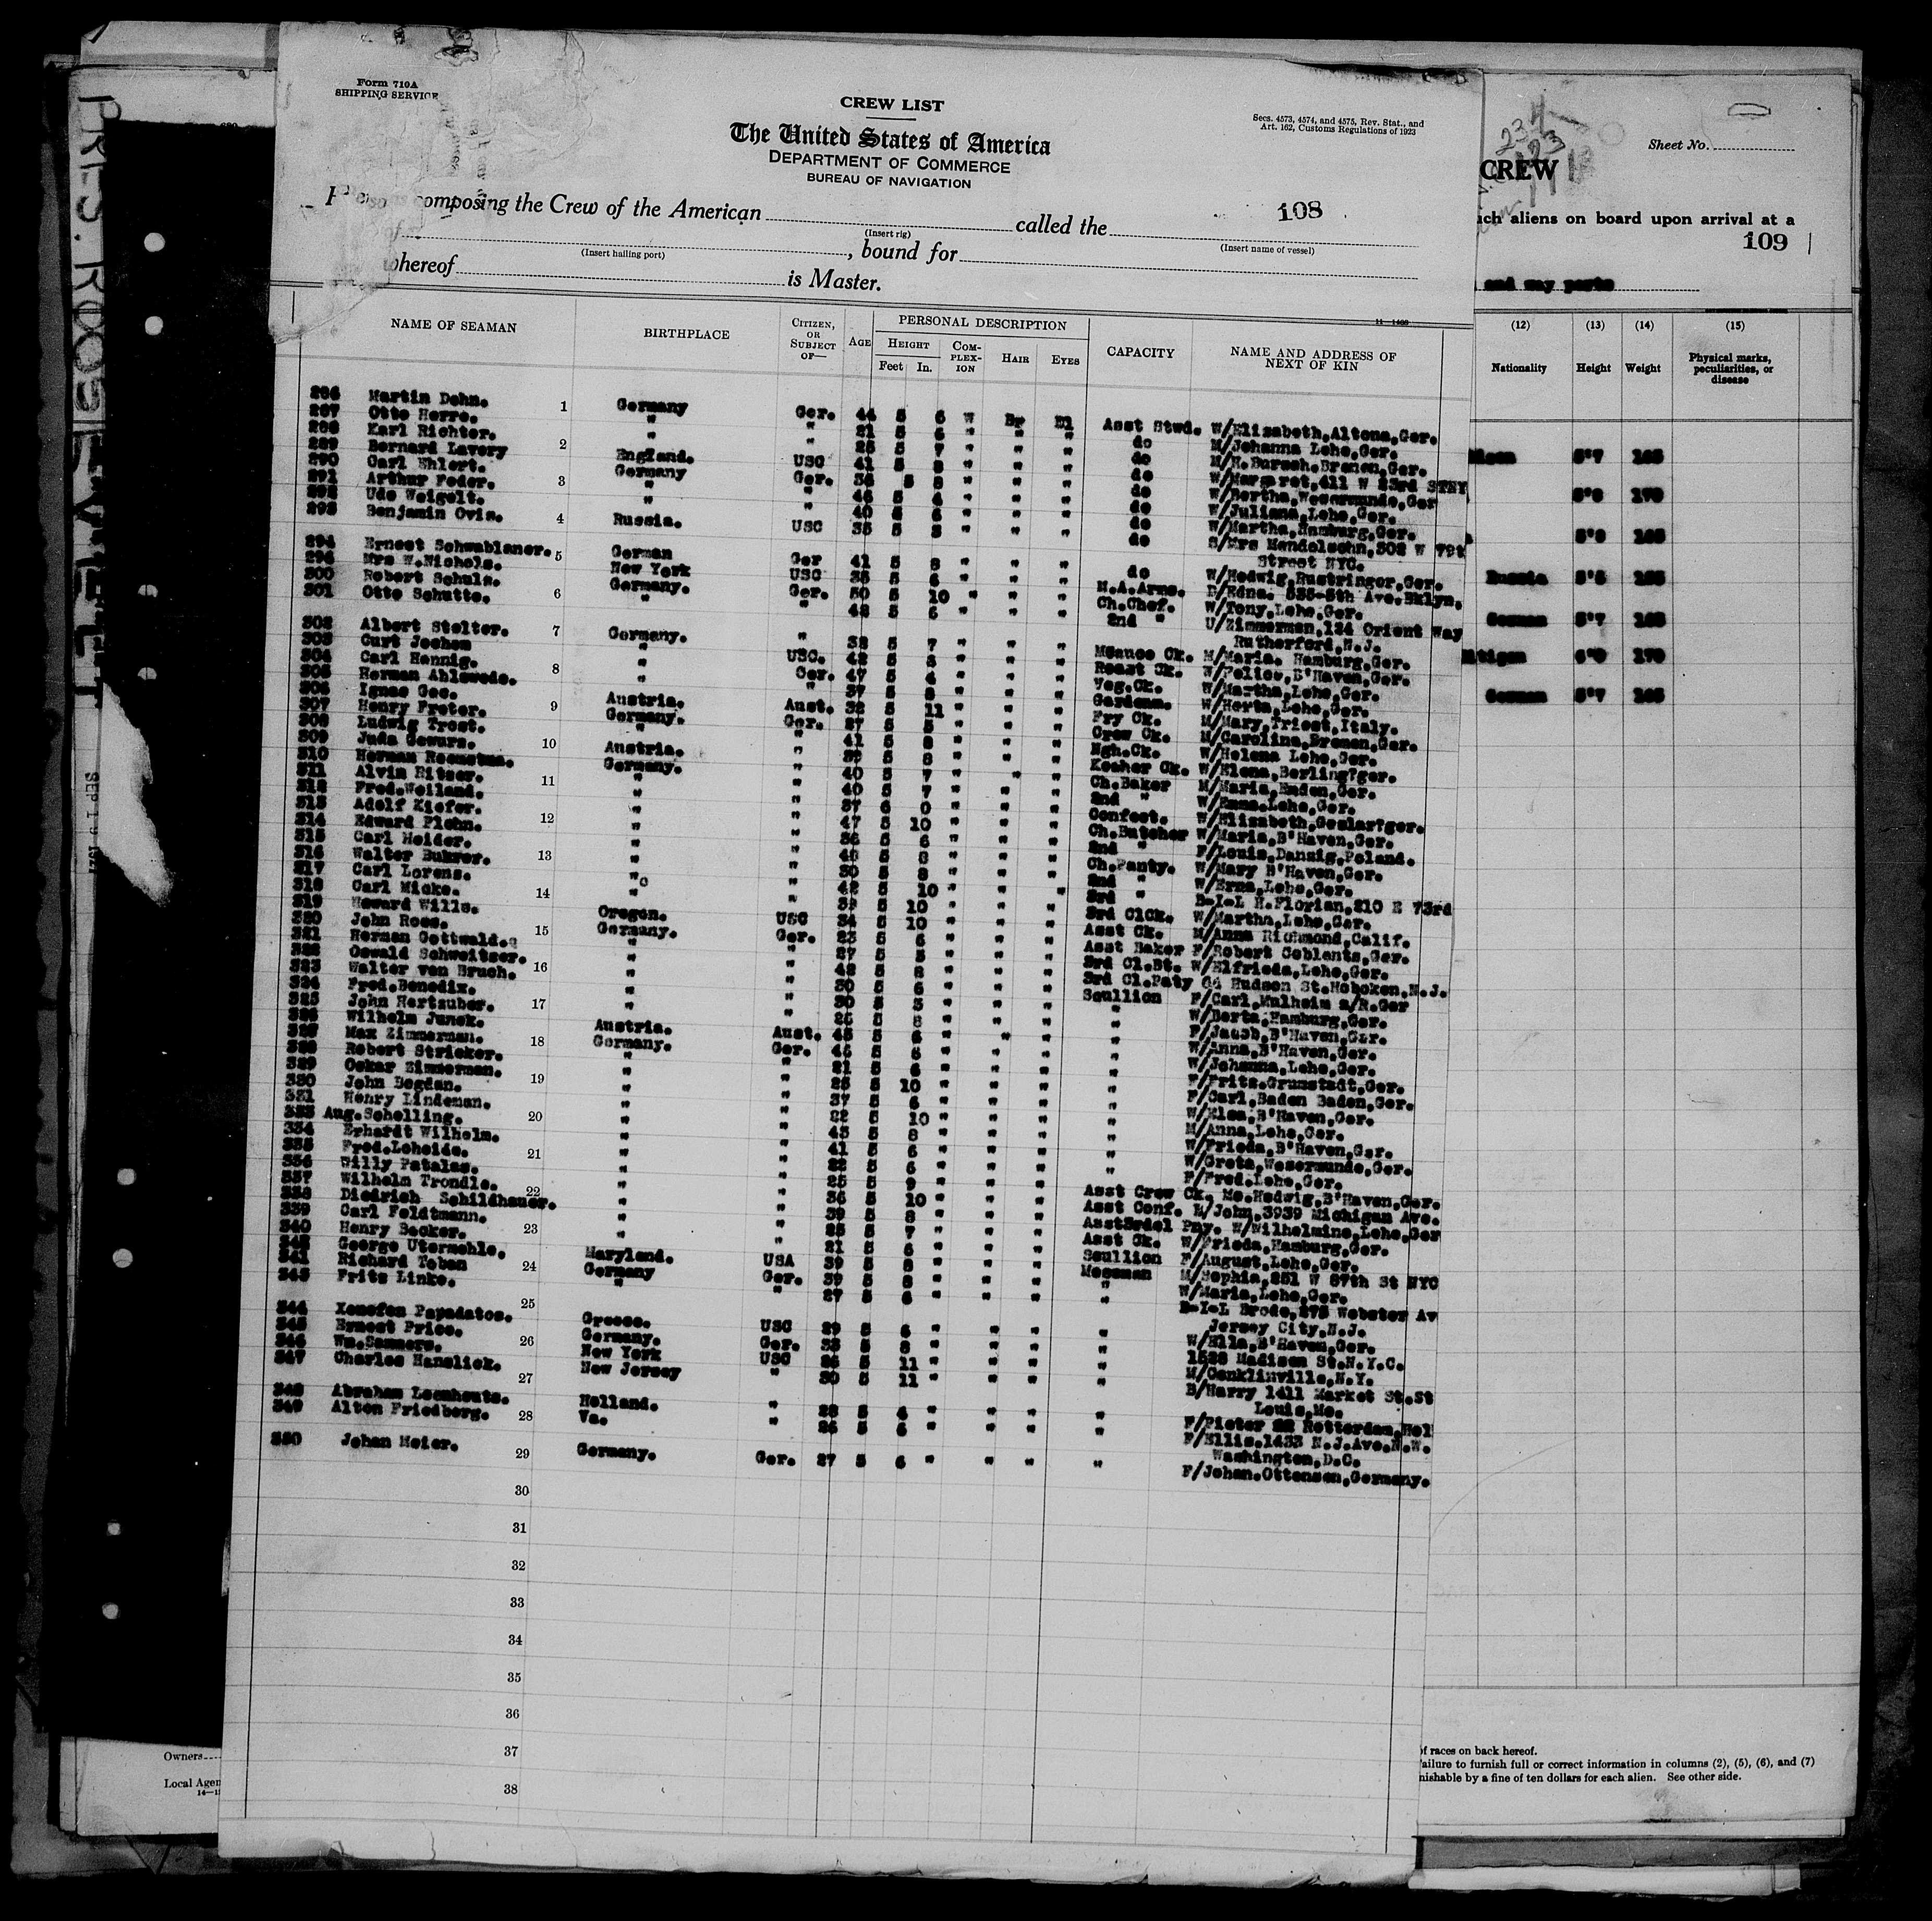 PRES. ROOSEVELT
SEP 19 192
Form 710A
SHIPPING SERVICE
CREW LIST
Secs. 4573, 4574, and 4575, Rev. Stat., and
Art. 162, Customs Regulations of 1923
The United States of America
DEPARTMENT OF COMMERCE
BUREAU OF NAVIGATION
composing the Crew of the American called the 108
(Insert rig) (Insert name of vessel)
of , bound for
(Insert hailing port)
whereof is Master.
NAME OF SEAMAN BIRTHPLACE CITIZEN, OR SUBJECT OF— AGE PERSONAL DESCRIPTION HEIGHT Feet In. COMPLEXION HAIR EYES CAPACITY NAME AND ADDRESS OF NEXT OF KIN
286 Martin Dehn. 1 Germany Ger. 44 5 6 W Br Bl Asst Stwd. W/Elizabeth,Altona,Ger.
287 Otto Herre. " " 21 5 6 " " " do M/Johanna Lehe,Ger.
288 Karl Richter. " " 25 5 7 " " " do M/H.Bursch.Bremen,Ger.
289 Bernard Lavery 2 England. USC 41 5 8 " " " do W/Margaret,411 W 23rd STNY
290 Carl Ehlert. Germany Ger. 36 5 8 " " " do W/Bertha,Wesermunde,Ger
291 Arthur Feder. 3 " " 46 5 4 " " " do W/Juliana,Lehe,Ger.
292 Udo Weigelt. " " 40 5 6 " " " do W/Martha,Hamburg,Ger.
293 Benjamin Ovis. 4 Russia. USC 35 5 8 " " " do S/Mrs Mendelsohn,302 W 79t
Street NYC.
294 Ernest Schwablaner. 5 German Ger 41 5 8 " " " do W/Hedwig,Rustringer,Ger.
296 Mrs W.Nichols. New York USC 35 5 6 " " " H.A.Arms. D/Edna. 535-5th Ave.Bklyn.
300 Robert Schulz. Germany. Ger. 50 5 10 " " " Ch.Chef. W/Tony,Lehe,Ger.
301 Otto Schutte. 6 " " 42 5 6 " " " 2nd " U/Zimmerman,124 Orient Way
Rutherford,N.J.
302 Albert Stelter. 7 Germany. " 32 5 7 " " " MSauce Ck. M/Maria. Hamburg,Ger.
303 Curt Jochem " USC. 42 5 8 " " " Roast Ck. B'Haven,Ger.
304 Carl Hennig. " Ger. 47 5 4 " " " Veg.Ck. W/Martha,Lehe,Ger.
305 Herman Ahlswede. 8 " " 37 5 8 " " " Gardemn. W/Herta,Lehe,Ger.
306 Ignac Gec. Austria. Aust. 32 5 11 " " " Fry Ck. M/Mary,Triest,Italy.
307 Henry Freter. 9 Germany. Ger. 27 5 5 " " " Crew Ck. M/Carolina,Bremen,Ger.
308 Ludwig Trost. " " 41 5 8 " " " Ngh.Ck. W/Helena Lehe,Ger.
309 Juda Gewurz. 10 Austria. " 39 5 8 " " " Kosher Ck. W/Elena,Berling?ger.
310 Herman Germany. " 40 5 7 " " " Ch.Baker M/Maria,Emden,Ger.
311 Alvin Bitzer. 11 " " 40 5 7 " " " 2nd " W/Emma.Lehe,Ger.
312 Fred.Weiland. " " 37 6 0 " " " Confect. W/Elizabeth,Goslar?ger.
313 Adolf Kiefer. 12 " " 47 5 10 " " " Ch.Butcher W/Maria,B'Haven,Ger.
314 Edward Plehn. " " 36 5 6 " " " 2nd " F/Louis,Danzig,Poland.
315 Carl Heider. 13 " " 45 5 8 " " " Ch.Panty. W/Mary B'Haven,Ger.
316 Walter Buhrer. " " 30 5 8 " " " 2nd " W/Erna,Lehe,Ger.
317 Carl Lorenz. " " 42 5 10 " " " 3rd B-I-L H.Florian,210 E 73rd
318 Carl Micke. 14 " " 39 5 10 " " " 3rd ClCk. W/Martha,Lehe,Ger.
319 Howard Wills. Oregon. USC 34 5 10 " " " Asst Ck. M/Anna Richmond,Calif.
320 John Roes. 15 Germany. Ger. 23 5 6 " " " Asst Baker F/Robert Coblentz,Ger.
321 Herman Gottwald. " " 27 5 5 " " " 3rd Cl.Bt. W/Elfrieda,Lehe,Ger.
322 Oswald Schweitzer. 16 " " 42 5 8 " " " 3rd Cl.Paty 64 Hudson St.Hoboken,N.J.
323 Walter von Bruch. " " 30 5 6 " " " Scullion F/Carl,Mulheim a/R.Ger
324 Fred.Benedix. " " 30 5 5 " " " " W/Berta,Hamburg,Ger.
325 John Hertzuber. 17 " " 26 5 8 " " " " F/Jacob,B'Haven,Ger.
326 Wilhelm Junek. Austria. Aust. 45 5 6 " " " " W/Anna,B'Haven,Ger.
327 Max Zimmerman. 18 Germany. Ger. 46 5 6 " " " " W/Johanna,Lehe,Ger.
328 Robert Stricker. " " 21 5 6 " " " " F/Fritz.Grunstadt,Ger.
329 Oskar Zimmerman. " " 25 5 10 " " " " F/Carl,Baden Baden,Ger.
330 John Bogdan. 19 " " 37 5 6 " " " " W/Elsa,B'Haven,Ger.
331 Henry Lindeman. " " 22 5 10 " " " " M/Anna,Lehe,Ger.
333 Aug.Schelling. 20 " " 43 5 8 " " " " W/Frieda,B'Haven,Ger.
334 Erhardt Wilhelm. " " 41 5 6 " " " " W/Greta,Wesermunde,Ger.
335 Fred.Loheide. 21 " " 22 5 6 " " " " F/Fred.Lehe,Ger.
336 Willy Patalas. " " 25 5 9 " " " Asst Crew Ck. Mo.Hedwig,B'Haven,Ger.
337 Wilhelm Trondle. 22 " " 36 5 10 " " " Asst Conf. /John,3939 Michigan Ave.
338 Diedrich Schildhauer. " " 39 5 8 " " " Asst3rdcl Pny. W/Wilhelmine,Lehe,Ger
339 Carl Feldtmann. " " 25 5 7 " " " Asst Ck. W/Frieda,Hamburg,Ger.
340 Henry Becker. 23 " " 21 5 6 " " " Scullion F/August,Lehe,Ger.
342 George Utermohle. Maryland. USA 39 5 8 " " " Messman M/Sophia,251 W 87th St NYC
341 Richard Toben 24 Germany Ger. 39 5 8 " " " " W/Maria,Lehe,Ger.
343 Fritz Linke. " " 27 5 6 " " " " B-I-L Brode,275 Webster Av
25 Jersey City,N.J.
344 Xenofon Papadatos. Greece. USC 29 5 6 " " " " W/Ella,B'Haven,Ger.
345 Ernest Price. 26 Germany. Ger. 33 5 8 " " " " 1528 Madison St.N.Y.C.
346 Wm.Sommers. New York USC 26 5 11 " " " " M/Conklinville,N.Y.
347 Charles Hanslick. 27 New Jersey " 30 5 11 " " " " B/Harry 1411 Market St.St
Louis,Mo.
348 Abraham Holland. " 28 5 4 " " " " F/Pieter 22 Rotterdam,Hol
349 Alton Friedberg. 28 Va. " 26 5 6 " " " " F/Ellis.1433 N.J.Ave.N.W.
Washington,D.C.
350 Johan Meier. 29 Germany. Ger. 27 5 6 " " " " F/Johan.Ottensen,Germany.
30
31
32
33
34
35
36
37
38
Sheet No.
234
CREW
such aliens on board upon arrival at a
109
and way ports
(12) (13) (14) (15)
Nationality Height Weight Physical marks, peculiarities, or disease
5'7 165
5'8 170
5'8 165
Russia 5'5 155
German 5'7 165
6'0 170
German 5'7 165
Owners
Local Agen
14—1
of races on back hereof.
Failure to furnish full or correct information in columns (2), (5), (6), and (7)
nishable by a fine of ten dollars for each alien. See other side.